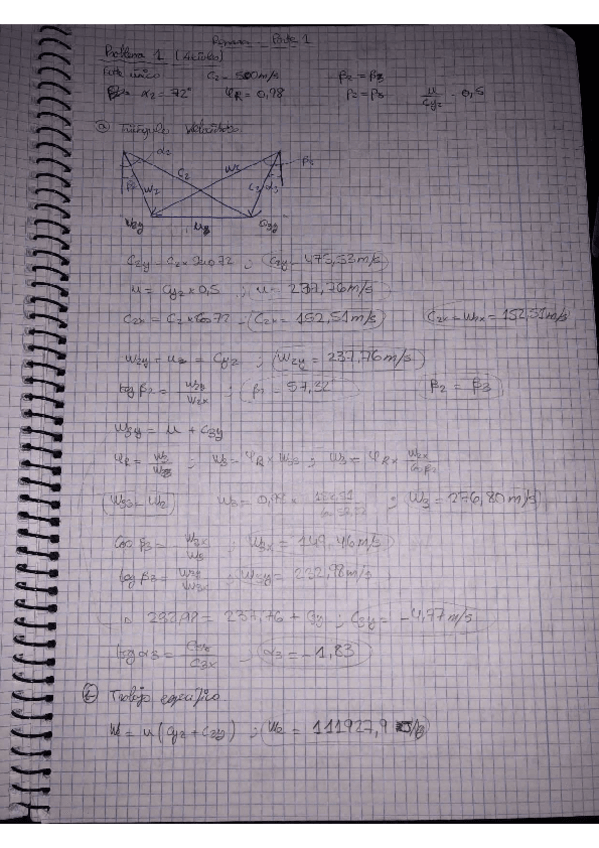 Parte 1
Problema 1 (
C₂ = 500 m/s β₂ = β₃
α₂ = 72° φR = 0,98 P₂ = P₃ u/Cy₂ = 0,5
a) Triángulo velocidades
α₂
β₂ W₂ C₂ W₂ C₃ α₃
C₂y = C₂ × sen 72 ; C₂y = 475,53 m/s
u = Cy₂ × 0,5 ; u = 237,76 m/s
C₂x = C₂ × cos 72 C₂x = 152,51 m/s C₂x = W₂x = 152,51 m/s
W₂y + u₂ = Cy₂ ; W₂y = 237,76 m/s
tog β₂ = W₂y/W₂x ; β₂ = 57,32° β₂ = β₃
W₃y = u + C₃y
φR = W₃/W₃s ; W₃ = φR × W₃s ; W₃ = φR × W₂x/cos β₂
W₃s = W₂ W₃ = 0,98 × ; W₃ = 276,80 m/s
cos β₃ = W₃x/W₃ ; W₃x = 149,46 m/s
tog β₃ = W₃y/W₃x ; W₃y = 232,98 m/s
232,98 = 237,76 + C₃y ; C₃y = -4,77 m/s
tog α₃ = C₃y/C₃x ; α₃ = -1,83
Trabajo específico
W = u (Cy₂ + C₃y) ; = 111927,9